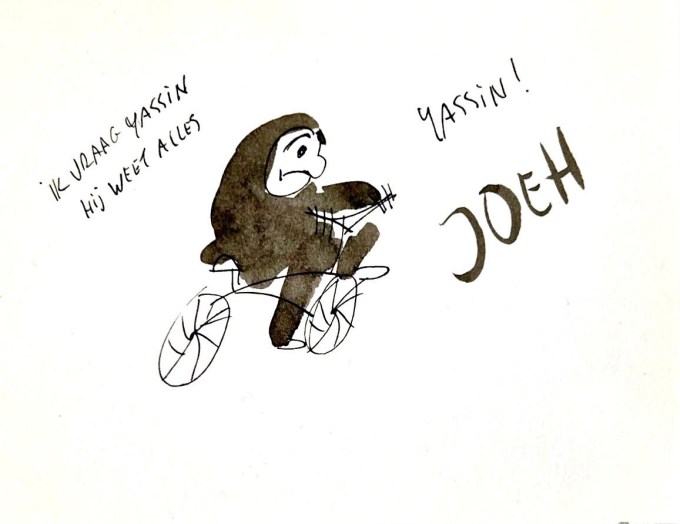 iK VRAAG YASSiN
Hij WEET ALLES
YASSiN!
JOEH